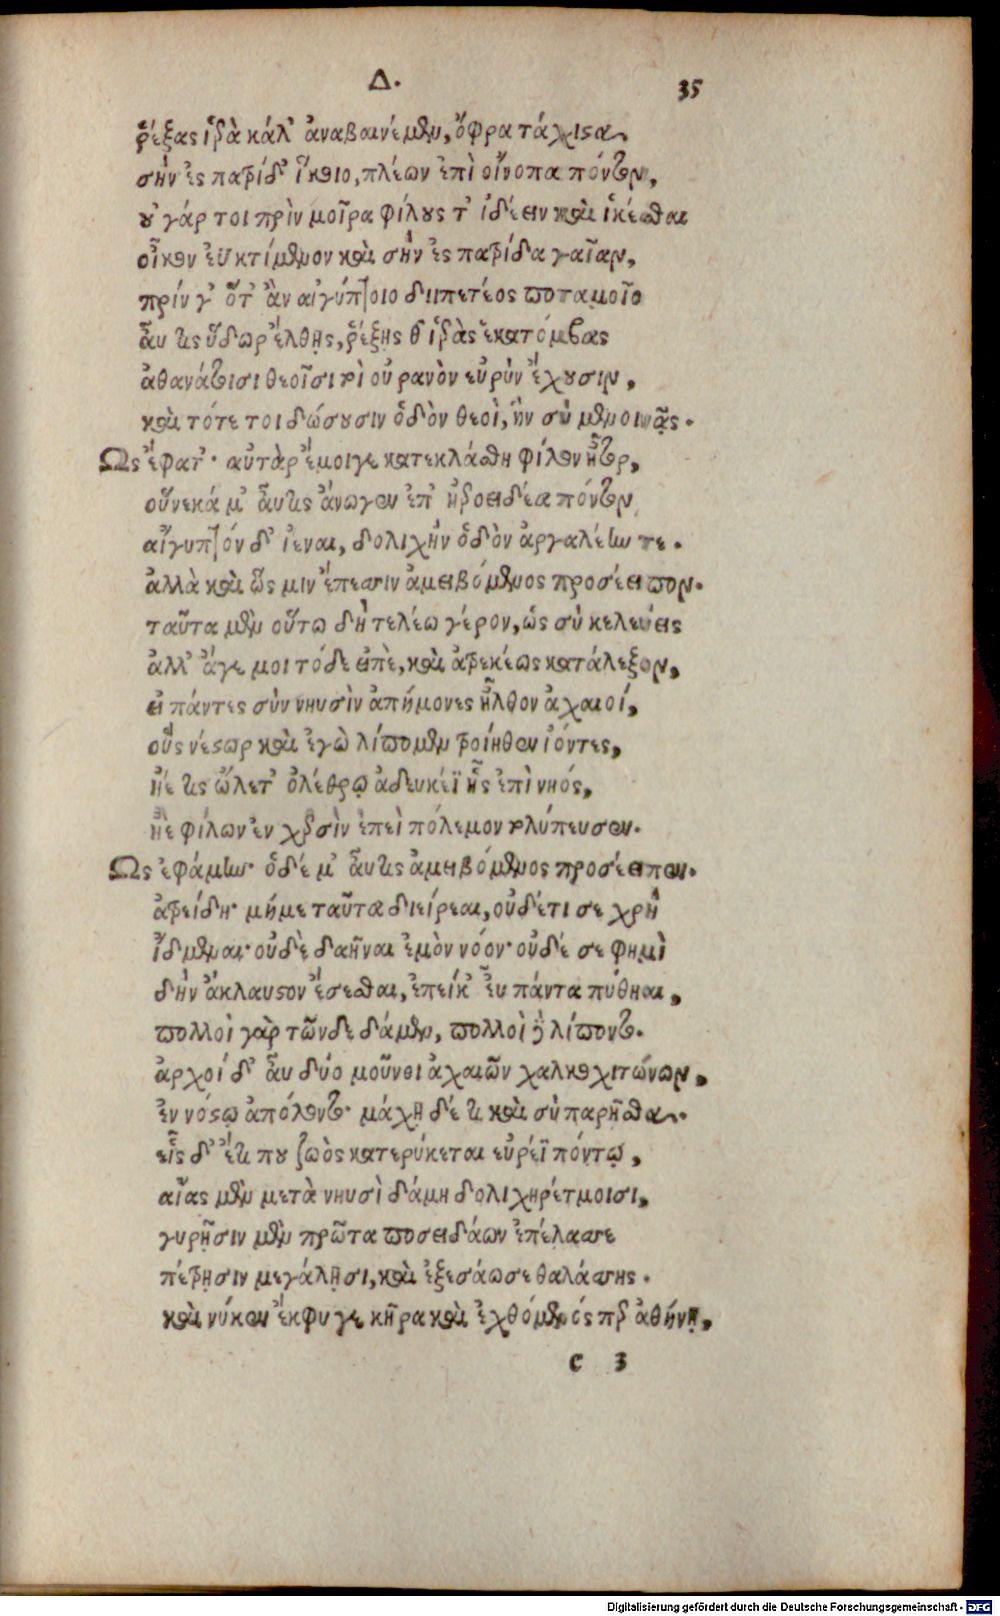 Δ. 35
ῥέξας ἱερὰ κάλ' ἀναβαινέμεν, ὄφρα τάχιστα
σὴν ἐς πατρίδ' ἵκοιο, πλέων ἐπὶ οἴνοπα πόντον,
οὐ γάρ τοι πρὶν μοῖρα φίλους τ' ἰδέειν καὶ ἱκέσθαι
οἶκον ἐϋκτίμενον καὶ σὴν ἐς πατρίδα γαῖαν,
πρίν γ' ὅτ' ἂν αἰγύπτοιο διιπετέος ποταμοῖο
αὖτις ὕδωρ ἔλθῃς, ῥέξῃς θ' ἱερὰς ἑκατόμβας
ἀθανάτοισι θεοῖσι τοὶ οὐρανὸν εὐρὺν ἔχουσιν,
καὶ τότε τοι δώσουσιν ὁδὸν θεοὶ, ἣν σὺ μενοινᾷς.
Ως ἔφατ'· αὐτὰρ ἔμοιγε κατεκλάσθη φίλον ἦτορ,
οὕνεκά μ' αὖτις ἄνωγεν ἐπ' ἠεροειδέα πόντον
αἴγυπτόν δ' ἰέναι, δολιχὴν ὁδὸν ἀργαλέην τε.
ἀλλὰ καὶ ὧς μιν ἔπεσσιν ἀμειβόμενος προσέειπον.
ταῦτα μὲν οὕτω δὴ τελέω γέρον, ὡς σὺ κελεύεις
ἀλλ' ἄγε μοι τόδε εἰπὲ, καὶ ἀτρεκέως κατάλεξον,
εἰ πάντες σὺν νηυσὶν ἀπήμονες ἦλθον ἀχαιοί,
οὓς νέστωρ καὶ ἐγὼ λίπομεν τροίηθεν ἰόντες,
ἠέ τις ὤλετ' ὀλέθρῳ ἀδευκέϊ ἧς ἐπὶ νηός,
ἠὲ φίλων ἐν χερσὶν ἐπεὶ πόλεμον τολύπευσεν.
Ως ἐφάμην· ὁ δέ μ' αὖτις ἀμειβόμενος προσέειπεν.
ἀτρείδη· μή με ταῦτα διείρεαι, οὐδέ τι σε χρὴ
ἴδμεναι· οὐδὲ δαῆναι ἐμὸν νόον· οὐδέ σε φημὶ
δὴν ἄκλαυστον ἔσεσθαι, ἐπεί κ' εὖ πάντα πύθηαι,
πολλοὶ γὰρ τῶνδε δάμεν, πολλοὶ δὲ λίποντο.
ἀρχοί δ' αὖ δύο μοῦνοι ἀχαιῶν χαλκοχιτώνων,
ἐν νόστῳ ἀπόλοντο· μάχῃ δέ τε καὶ σὺ παρῆσθα.
εἷς δ' ἔτι που ζωὸς κατερύκεται εὐρέϊ πόντῳ,
αἴας μὲν μετὰ νηυσὶ δάμη δολιχηρέτμοισι,
γυρῇσιν μὲν πρῶτα ποσειδάων ἐπέλασσε
πέτρῃσιν μεγάλῃσι, καὶ ἐξεσάωσε θαλάσσης.
καὶ νύκεν ἔκφυγε κῆρα καὶ ἐχθόμενός περ ἀθήνῃ,
c 3
Digitalisierung gefördert durch die Deutsche Forschungsgemeinschaft - DFG